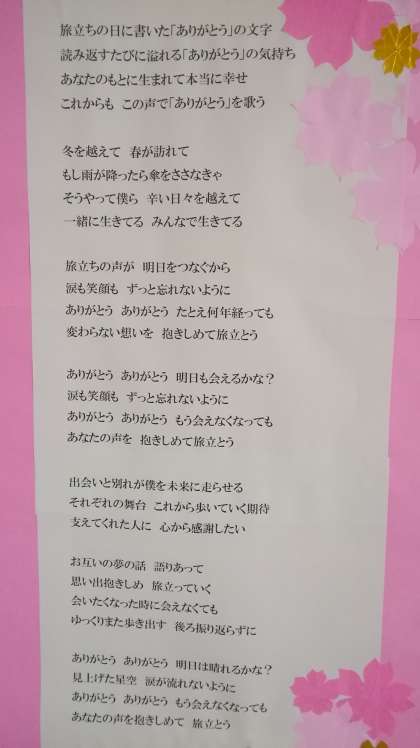 旅立ちの日に書いた「ありがとう」の文字
読み返すたびに溢れる「ありがとう」の気持ち
あなたのもとに生まれて本当に幸せ
これからも この声で「ありがとう」を歌う
冬を越えて 春が訪れて
もし雨が降ったら傘をささなきゃ
そうやって僕ら 辛い日々を越えて
一緒に生きてる みんなで生きてる
旅立ちの声が 明日をつなぐから
涙も笑顔も ずっと忘れないように
ありがとう ありがとう たとえ何年経っても
変わらない想いを 抱きしめて旅立とう
ありがとう ありがとう 明日も会えるかな？
涙も笑顔も ずっと忘れないように
ありがとう ありがとう もう会えなくなっても
あなたの声を 抱きしめて旅立とう
出会いと別れが僕を未来に走らせる
それぞれの舞台 これから歩いていく期待
支えてくれた人に 心から感謝したい
お互いの夢の話 語りあって
思い出抱きしめ 旅立っていく
会いたくなった時に会えなくても
ゆっくりまた歩き出す 後ろ振り返らずに
ありがとう ありがとう 明日は晴れるかな？
見上げた星空 涙が流れないように
ありがとう ありがとう もう会えなくなっても
あなたの声を抱きしめて 旅立とう